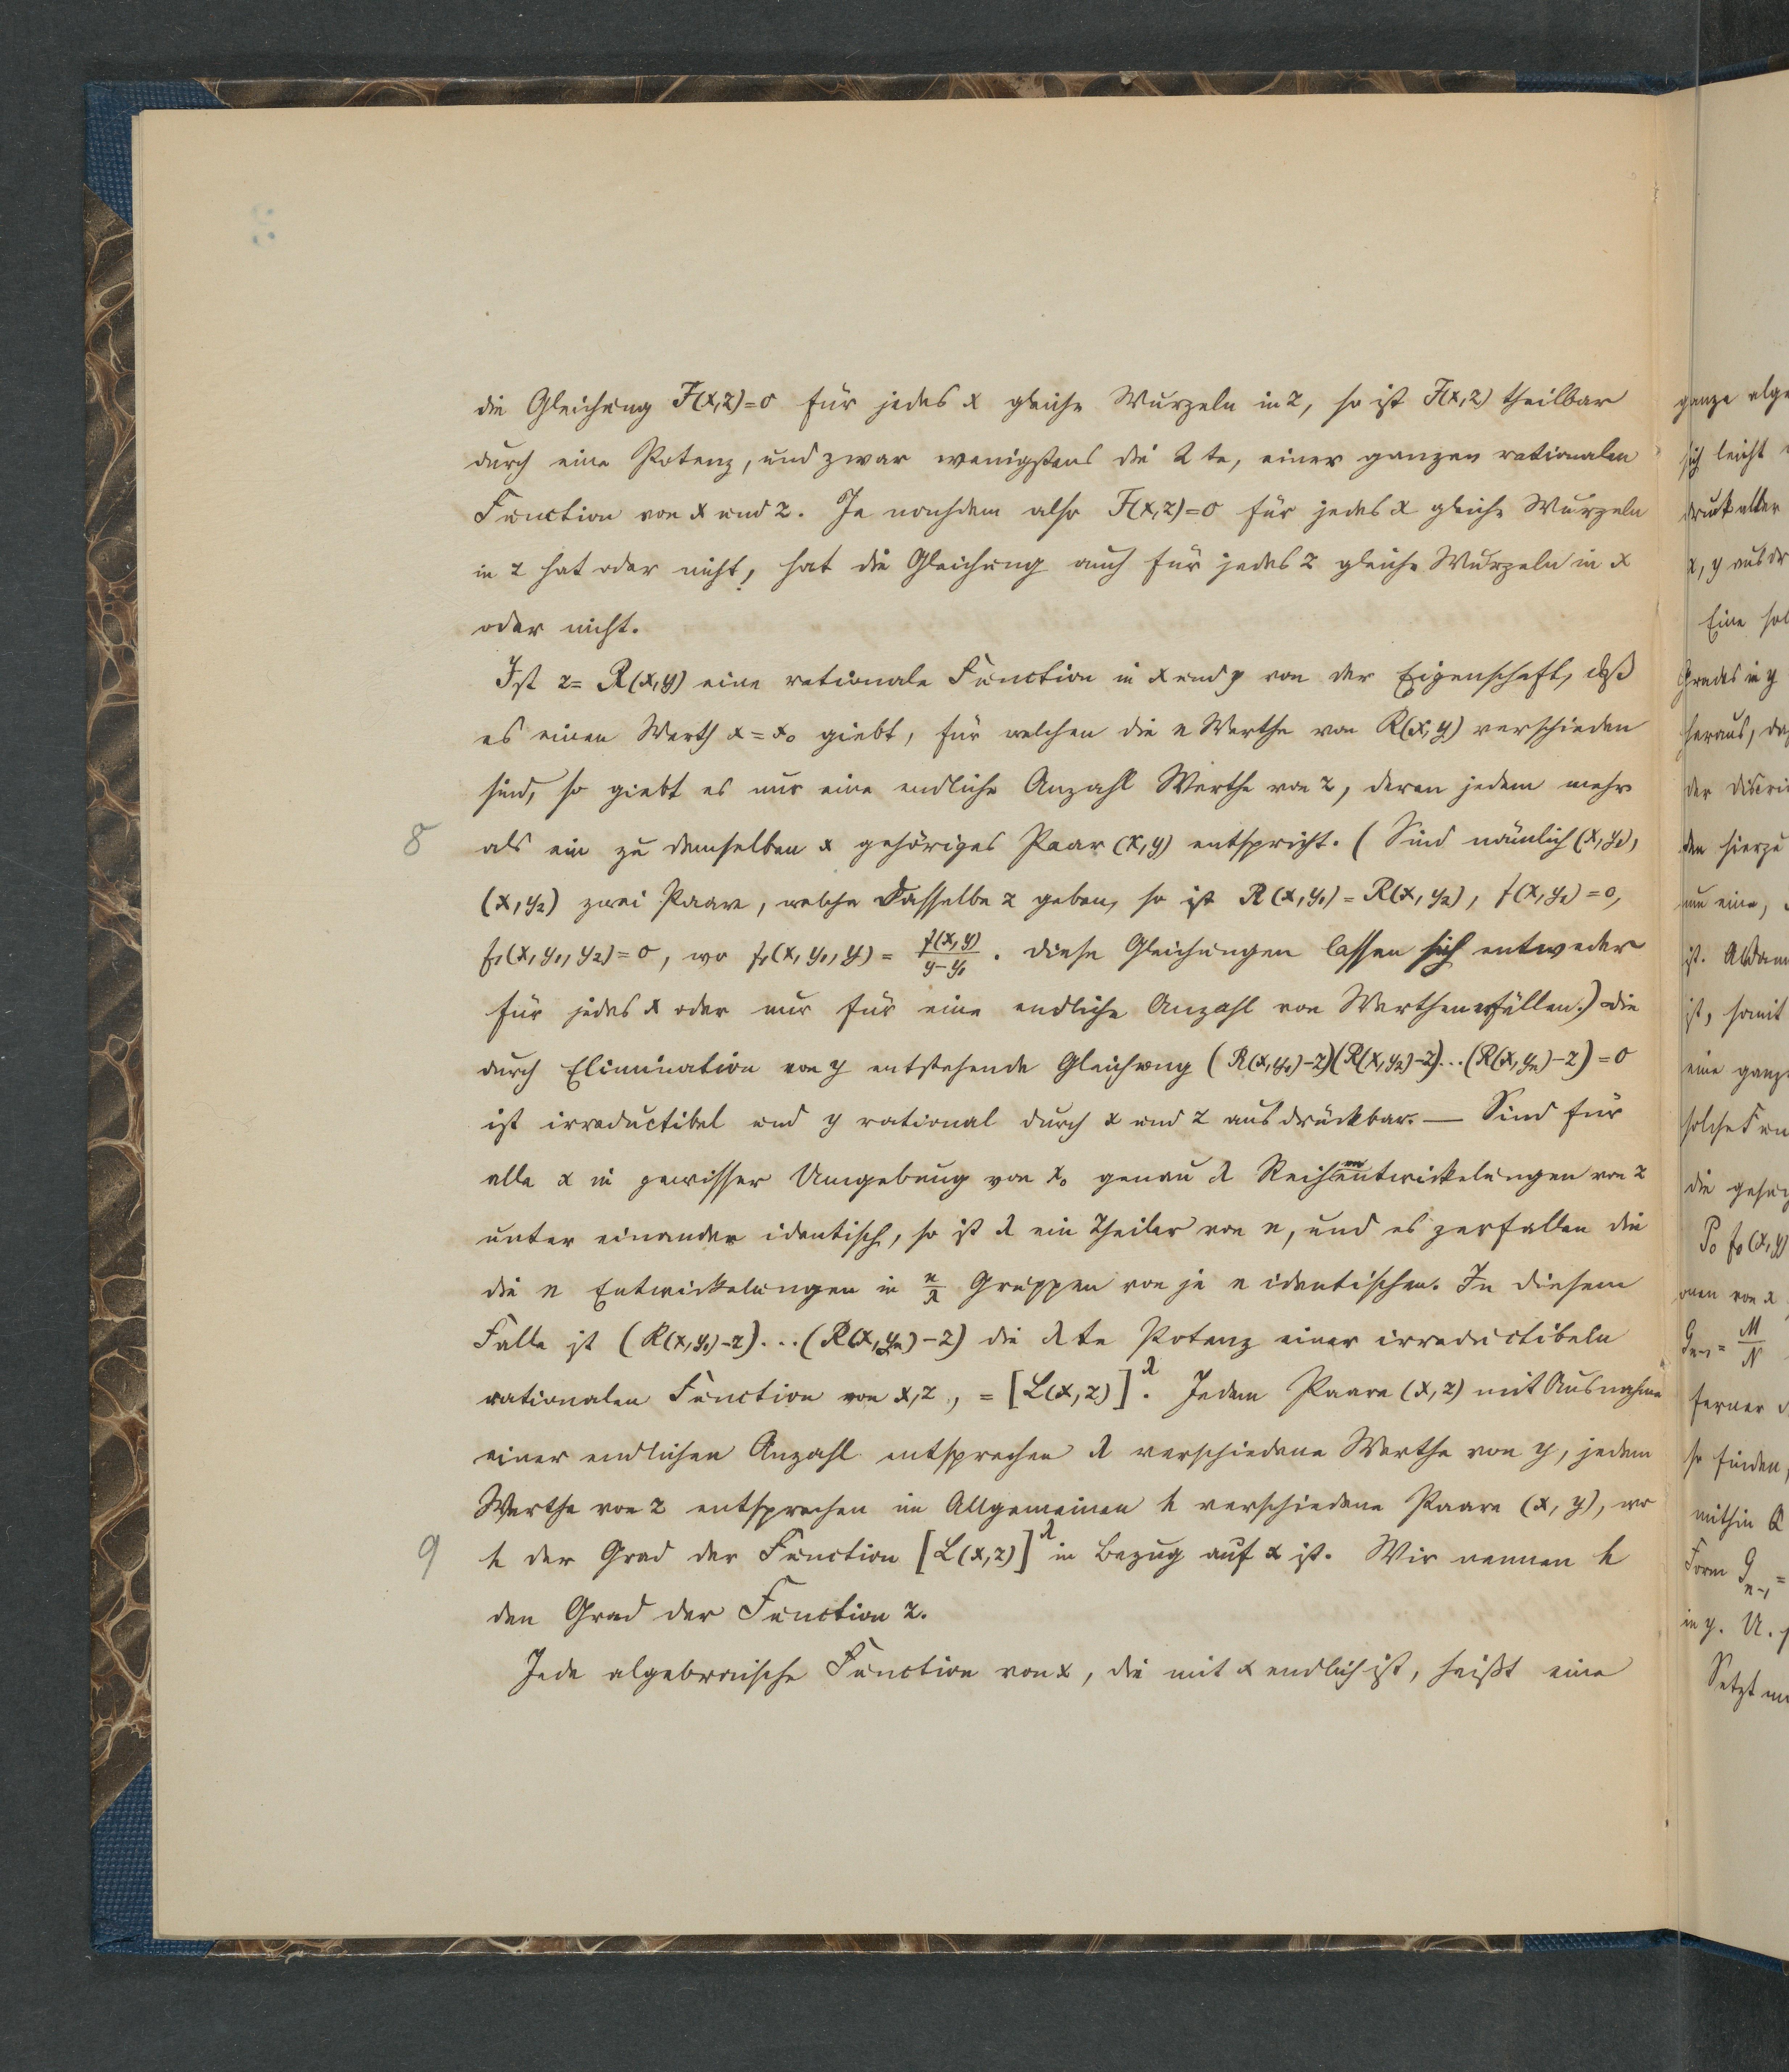 die Gleichung F(x,z)=0 für jedes x gleiche Wurzeln in z, so ist F(x,z) theilbar
durch eine Potenz, und zwar wenigstens die 2te, einer ganzen rationalen
Function von x und z. Je nachdem also F(x,z)=0 für jedes x gleiche Wurzeln
in z hat oder nicht, hat die Gleichung auch für jedes z gleiche Wurzeln in x
oder nicht.
Ist z= R(x,y) eine rationale Function in x und y von der Eigenschaft, daß
es einen Werth x=x₀ giebt, für welchen die n Werthe von R(x,y) verschieden
sind, so giebt es nur eine endliche Anzahl Werthe von z, deren jedem mehr
8 als ein zu demselben x gehöriges Paar (x,y) entspricht. (Sind nämlich (x,y₁),
(x,y₂) zwei Paare, welche dasselbe z geben, so ist R(x,y₁)=R(x,y₂), f(x,y₁)=0,
f₁(x,y₁,y₂)=0, wo f₁(x,y₁,y) = f(x,y)/(y-y₁). Diese Gleichungen lassen sich entweder
für jedes x oder nur für eine endliche Anzahl von Werthen erfüllen.) Die
durch Elimination von y entstehende Gleichung (R(x,y₁)-z)(R(x,y₂)-z)...(R(x,yₙ)-z)=0
ist irreductibel und y rational durch x und z ausdrückbar. — Sind für
alle x in gewisser Umgebung von x₀ genau λ Reihenentwickelungen von z
unter einander identisch, so ist λ ein Theiler von n, und es zerfallen die
die n Entwickelungen in n/λ Gruppen von je n identischen. In diesem
Falle ist (R(x,y₁)-z)...(R(x,yₙ)-z) die λte Potenz einer irreductibeln
rationalen Function von x,z, = [L(x,z)]^λ. Jedem Paare (x,z) mit Ausnahme
einer endlichen Anzahl entsprechen λ verschiedene Werthe von y, jedem
Werthe von z entsprechen im Allgemeinen k verschiedene Paare (x,y), wo
9 k der Grad der Function [L(x,z)]^λ in Bezug auf x ist. Wir nennen k
den Grad der Function z.
Jede algebraische Function von x, die mit x endlich ist, heißt eine